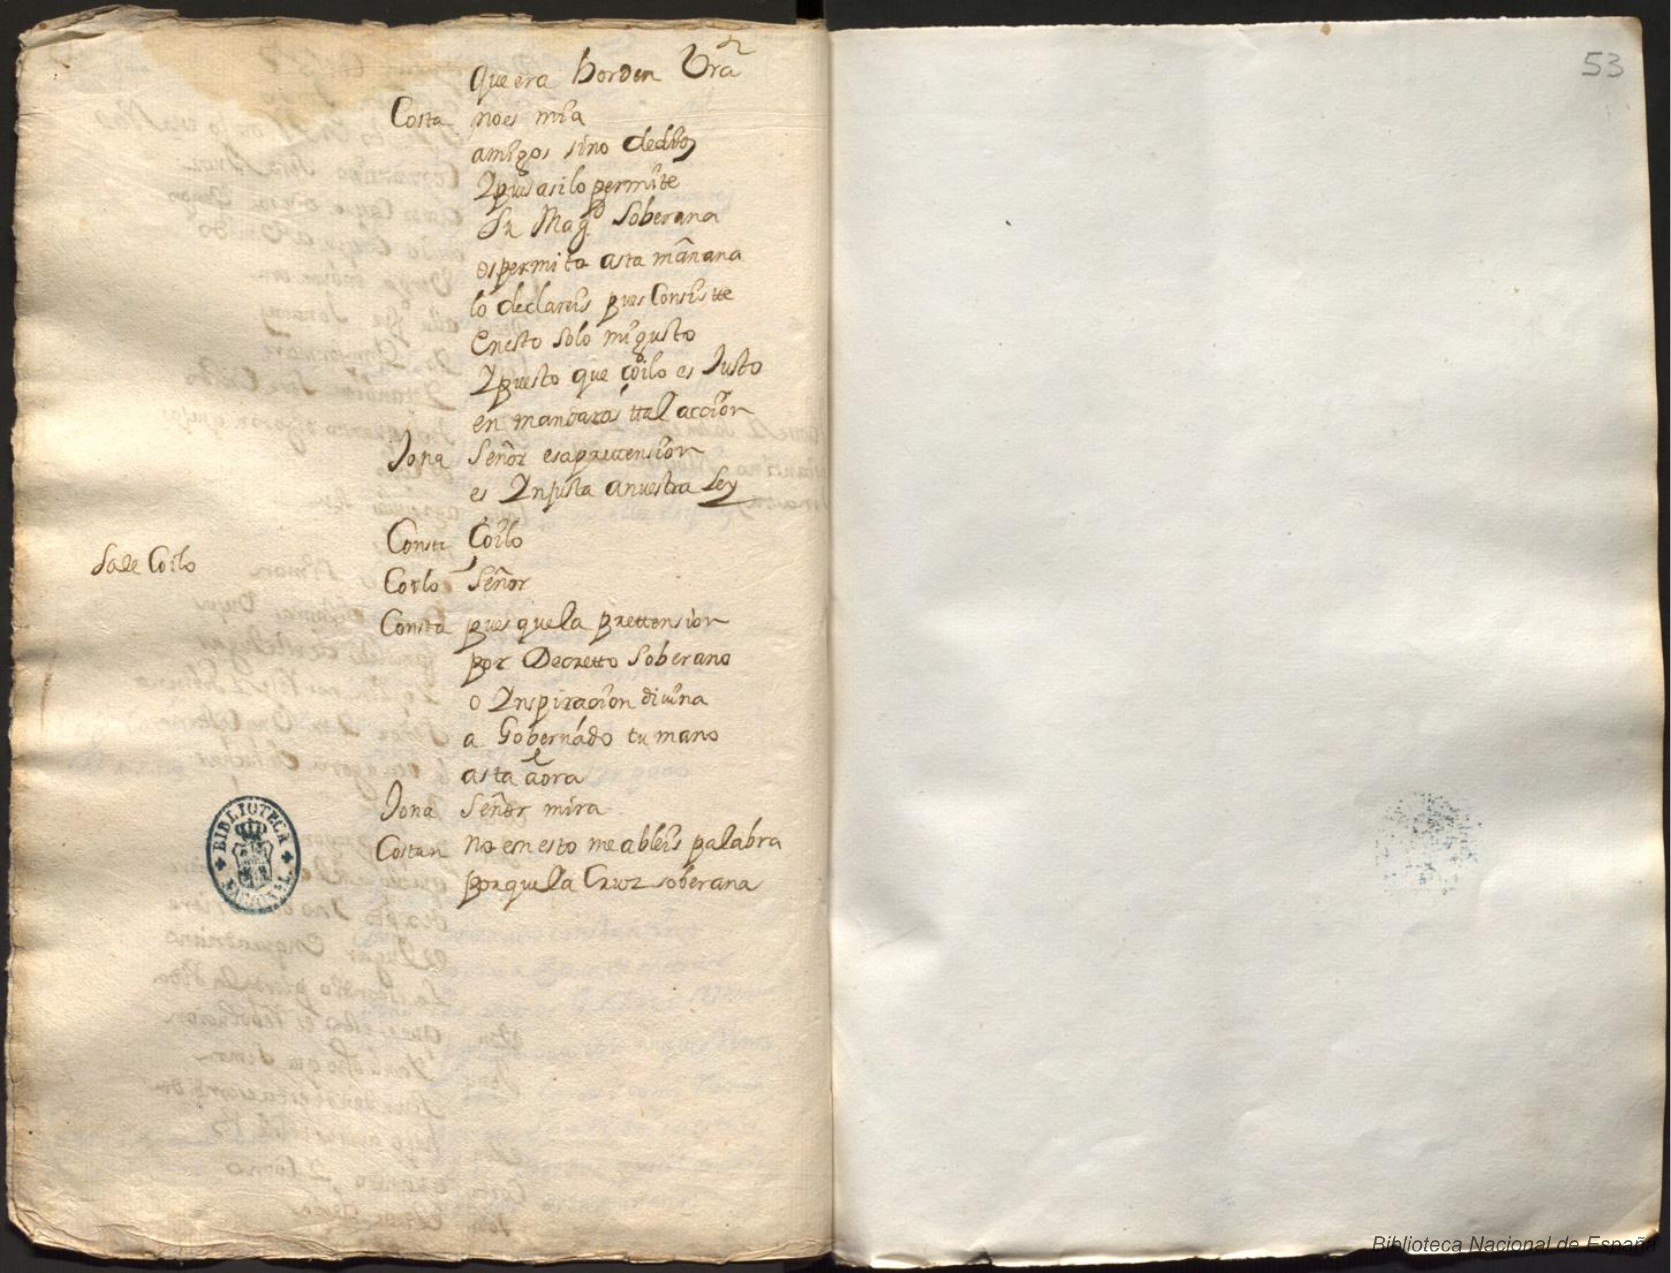 que era horden Vra
Costa no es mia
amigos sino de dios
Y pues asi lo permite
Su Magd Soberana
os permito asta mañana
lo declareis pues Consiste
en esto solo mi gusto
Y puesto que çoilo es Justo
en mandaros ttal accion
Jona Señor esa prettension
es Ynjusta a nuestra Ley
Consti Çoilo
Sale Coilo
Coilo Señor
Consta pues que la prettension
por Decretto Soberano
o Ynspiracion divina
a Gobernádo tu mano
asta aora
Jona Señor mira
Costan No em esto me ableis palabra
porque la Cruz soberana
BIBLIOTECA NACIONAL
53
Biblioteca Nacional de España